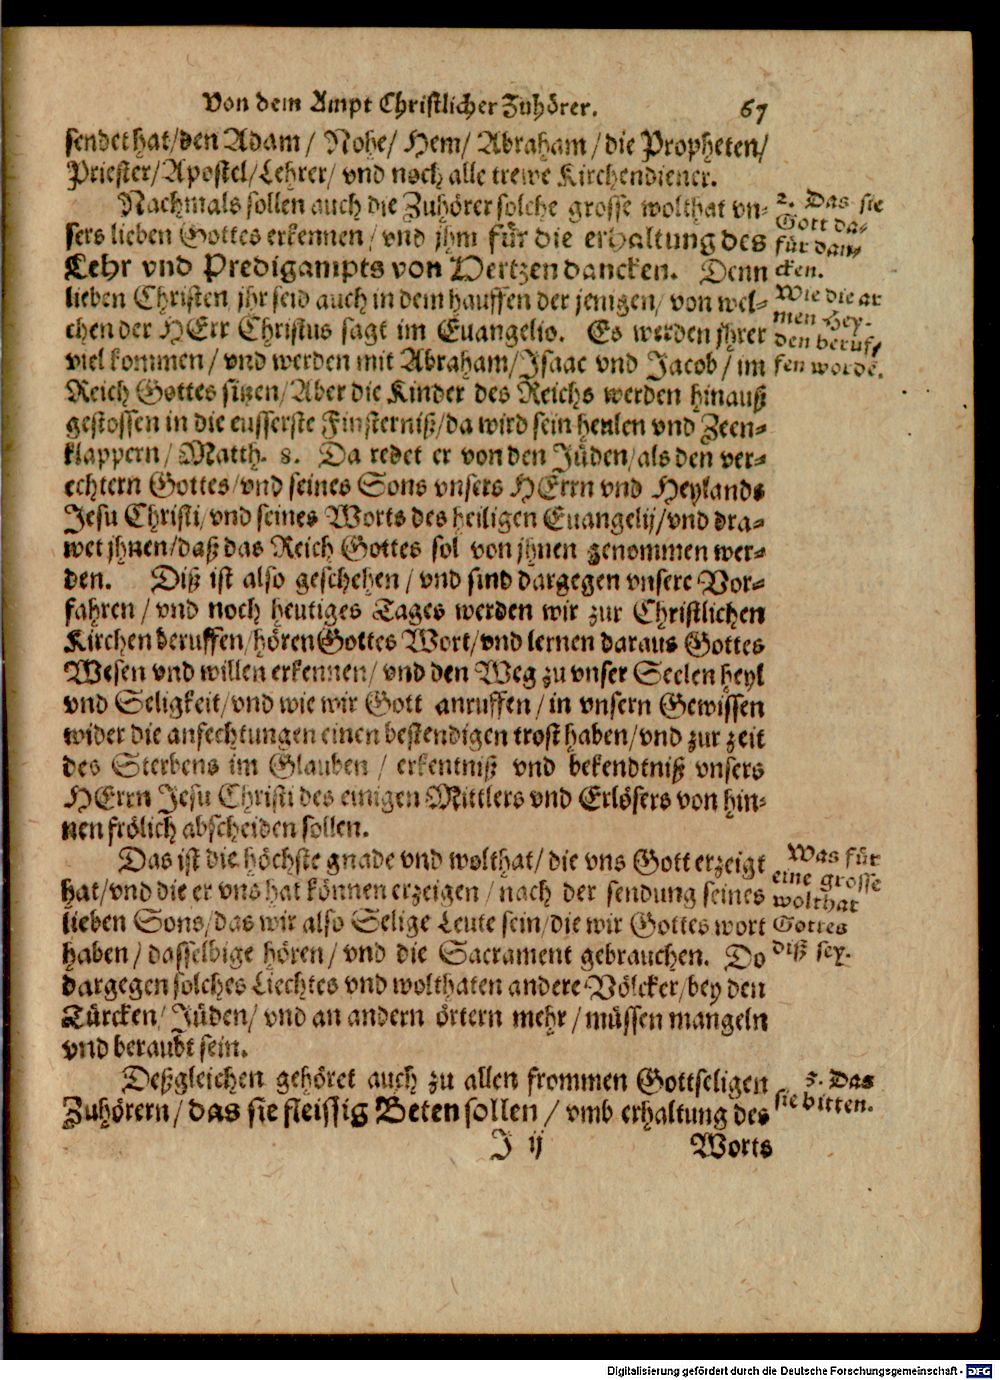 Von dem Ampt Christlicher Zuhörer. 67
sendet hat/den Adam/ Nohe/ Hem/ Abraham/die Propheten/
Priester/Apostel/Lehrer/ vnd noch alle trewe Kirchendiener.
Nachmals sollen auch die Zuhörer solche grosse wolthat vn-
sers lieben Gottes erkennen/vnd jhm für die erhaltung des
Lehr vnd Predigampts von Hertzen dancken. Denn
lieben Christen jhr seid auch in dem hauffen der jenigen/von wel-
chen der HErr Christus sagt im Euangelio. Es werden jhrer
viel kommen/ vnd werden mit Abraham/Isaac vnd Jacob/ im
Reich Gottes sitzen/Aber die Kinder des Reichs werden hinauß
gestossen in die eusserste Finsterniß/da wird sein heulen vnd Zeen-
klappern/ Matth. 8. Da redet er von den Jüden/als den ver-
echtern Gottes/vnd seines Sons vnsers HErrn vnd Heylands
Jesu Christi/vnd seines Worts des heiligen Euangelij/vnd dra-
wet jhnen/daß das Reich Gottes sol von jhnen genommen wer-
den. Diß ist also geschehen/ vnd sind dargegen vnsere Vor-
fahren/vnd noch heutiges Tages werden wir zur Christlichen
Kirchen beruffen/hören Gottes Wort/vnd lernen daraus Gottes
Wesen vnd willen erkennen/vnd den Weg zu vnser Seelen heyl
vnd Seligkeit/vnd wie wir Gott anruffen/in vnsern Gewissen
wider die anfechtungen einen bestendigen trost haben/vnd zur zeit
des Sterbens im Glauben/ erkentniß vnd bekendtniß vnsers
HErrn Jesu Christi des einigen Mittlers vnd Erlösers von hin-
nen frölich abscheiden sollen.
Das ist die höchste gnade vnd wolthat/die vns Gott erzeigt
hat/vnd die er vns hat können erzeigen/nach der sendung seines
lieben Sons/das wir also Selige Leute sein/die wir Gottes wort
haben/dasselbige hören/ vnd die Sacrament gebrauchen. Do
dargegen solches Liechtes vnd wolthaten andere Völcker/bey den
Türcken/Jüden/ vnd an andern örtern mehr/müssen mangeln
vnd beraubt sein.
Deßgleichen gehöret auch zu allen frommen Gottseligen
Zuhörern/das sie fleissig Beten sollen/ vmb erhaltung des
J ij Worts
2. Das sie
Gott da-
für dan-
cken.
Wie die ar
men Hey-
den beruf-
fen wordē.
Was für
eine grosse
wolthat
Gottes
diß sey.
3. Das
sie bitten.
Digitalisierung gefördert durch die Deutsche Forschungsgemeinschaft - DFG